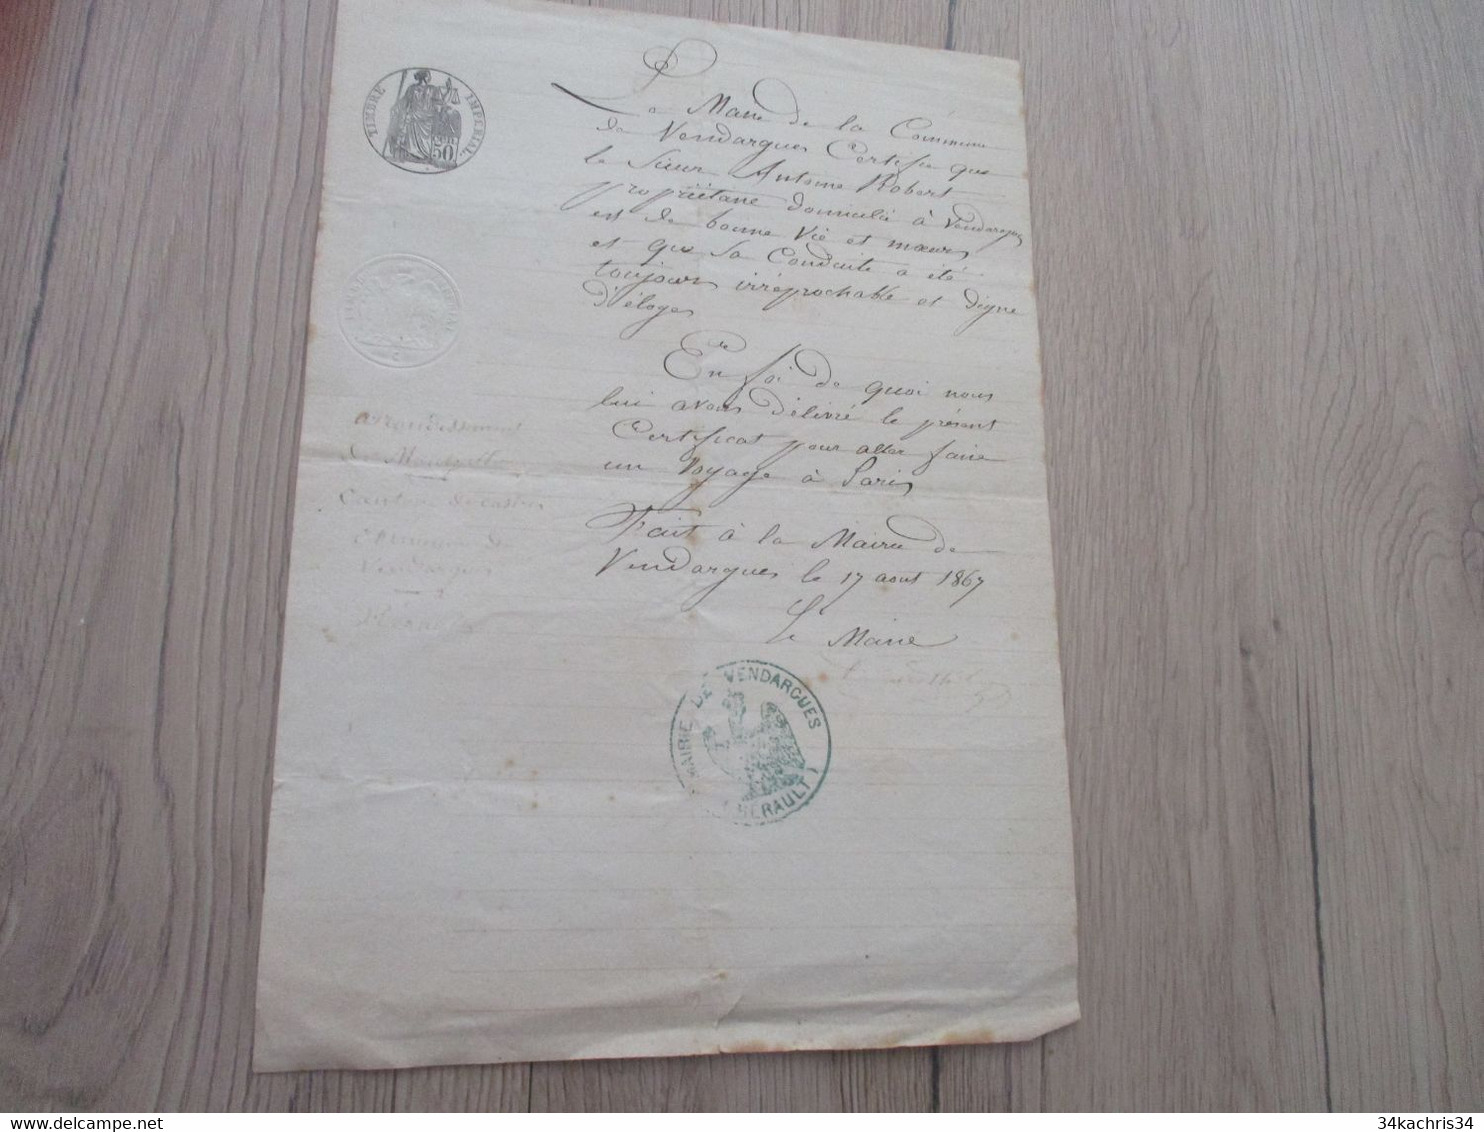 TIMBRE IMPERIAL
50
Le Maire de la Commune
de Vendargues Certifie que
le Sieur Antoine Robert
propriétaire domicilié à Vendargues
est de bonne vie et mœurs
et que sa Conduite a été
toujours irréprochable et digne
d'éloges
En foi de quoi nous
lui avons délivré le présent
Certificat pour aller faire
un voyage à Paris
Fait à la Mairie de
Vendargues le 17 aout 1867
le Maire
arrondissement
de Montpellier
Canton de Castries
Commune de
Vendargues
MAIRIE DE VENDARGUES
HERAULT
34kachris34
delcampe.net